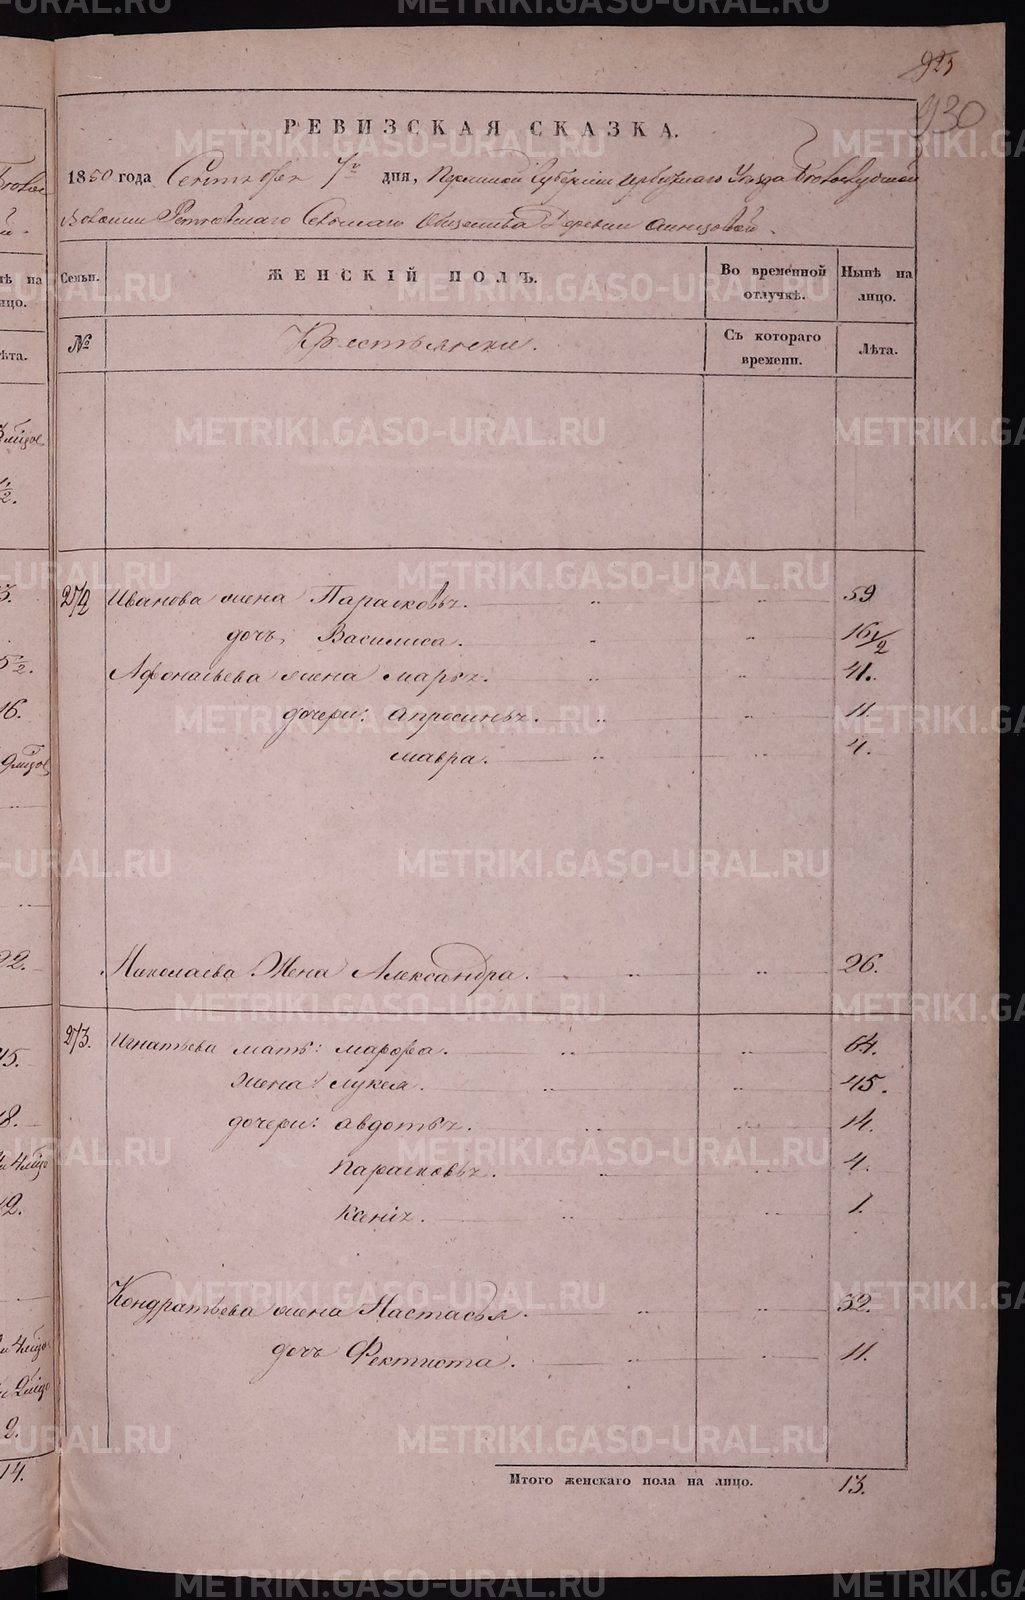 925
930
РЕВИЗСКАЯ СКАЗКА.
1850 года, Сентября 7го дня, Пермской Губернии Ирбитскаго Уезда Белослудской
Волости Ретневскаго Сельскаго Общества Деревни
Семьи.
ЖЕНСКІЙ ПОЛЪ.
Во временной отлучкѣ.
Нынѣ на лицо.
№
Крестьянки.
Съ котораго времени.
Лѣта.
274 Иванова жена Парасковья. 59
дочь, Василиса. 16 1/2
Афонасьева жена Марья. 41.
дочери: Апросинья. 11
Мавра. 4.
Николаева Жена Александра. 26.
273. Игнатьева мать: Марфа. 64.
жена: Лукея. 45.
дочери: Авдотья. 14.
Парасковья. 4.
Ксенія. 1.
Кондратьева жена Настасья. 32.
дочь Фектиста. 11.
Итого женскаго пола на лицо. 13.